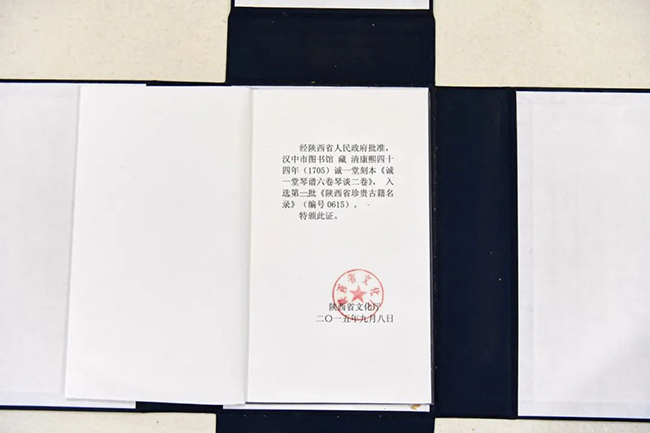 经陕西省人民政府批准，
汉中市图书馆 藏 清康熙四十
四年（1705）诚一堂刻本《诚
一堂琴谱六卷琴谈二卷》， 入
选第一批《陕西省珍贵古籍名
录》（编号 0615）。
特颁此证。
陕西省文化厅
陕西省文化厅
二〇一五年九月八日